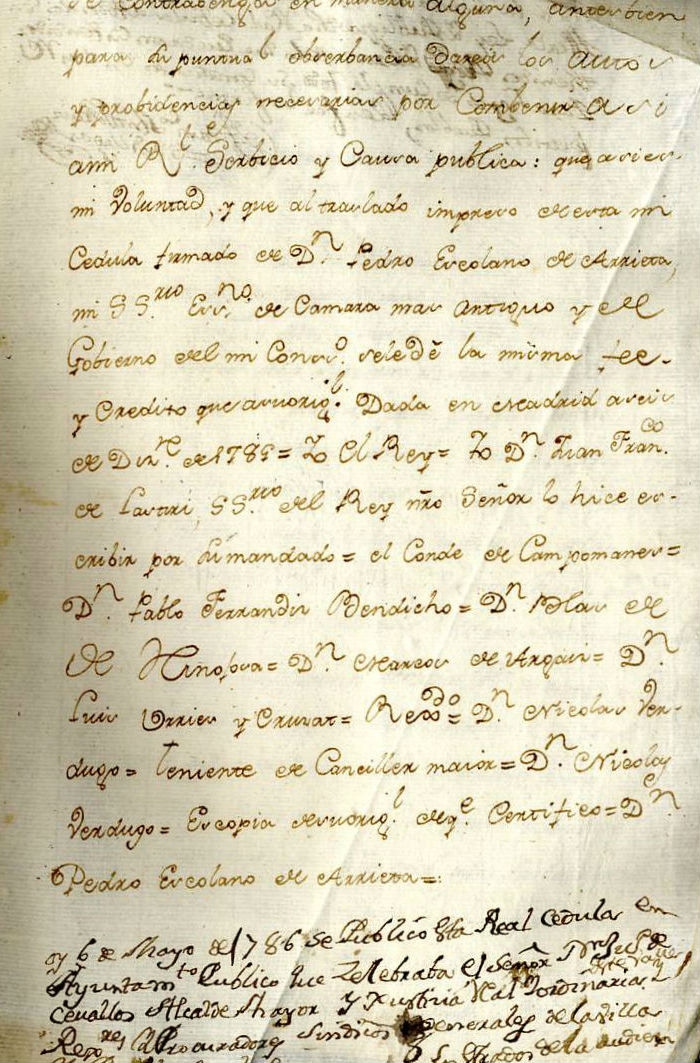 se contrabenga en manera alguna, antes bien
para su puntual obserbancia dareis los Autos
y probidencias necesarias por Combenir asi
ami Rl. Serbicio y Causa publica: que asi es
mi Voluntad, y que al traslado impreso de esta mi
Cedula firmado de Dn. Pedro Escolano de Arrieta,
mi SS.rio Ess.no de Camara mas Antiquo y del
Gobierno del mi Cons.o sele dé la misma fee
y Credito que asu orig.l Dada en Madrid a seis
de Diz.re de 1785= Yo El Rey= Yo Dn. Juan Fran.co
de Lastiri, SS.rio del Rey nro Señor lo hice es-
cribir por su mandado= el Conde de Campomanes=
Dn. Pablo Ferrandiz Bendicho= Dn. Blas de
de Hinojosa= Dn. Marcos de Argaiz= Dn.
Luis Urries y Cruzat= Rexdo= Dn. Nicolas Ver-
dugo= Teniente de Canciller maior= Dn. Nicolas
Verdugo= Es copia de su orig.l de q.e Certifico= Dn.
Pedro Escolano de Arrieta=:
oy 6 de Mayo de 1786 se Publicó Esta Real Cedula en
Ayuntam.to Publico que Zelebraba el Señor Dn
Cevallos Alcalde Mayor y Justicia Real ordinaria
Procuradores Sindicos Generales de la Villa
de la audien